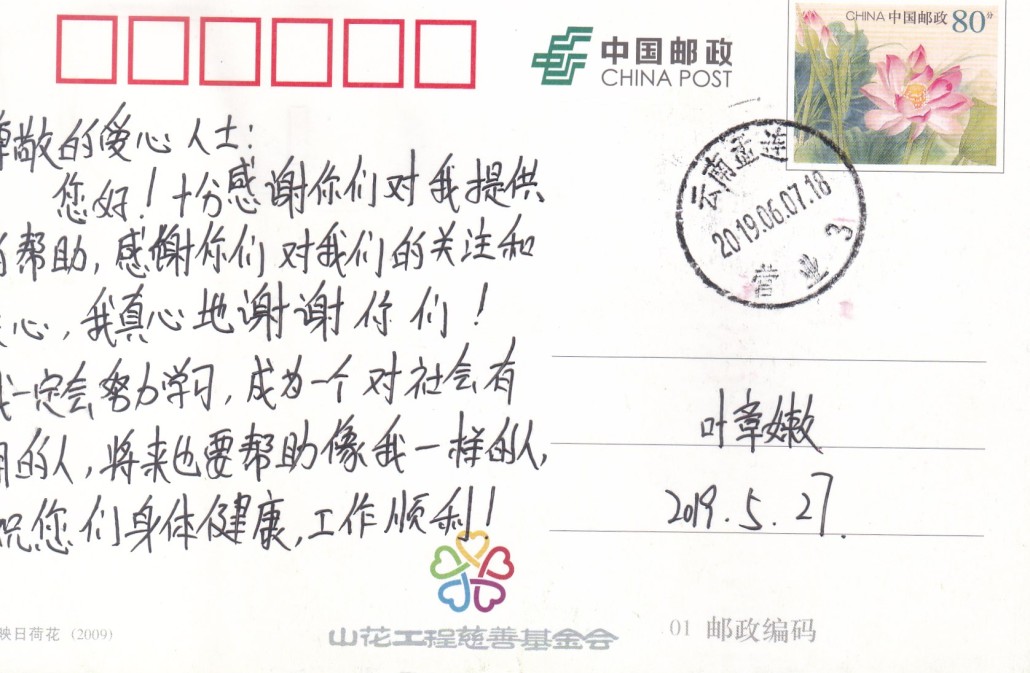 中国邮政
CHINA POST
CHINA 中国邮政 80分
云南孟连
2019.06.07.18
营业 3
尊敬的爱心人士:
您好!十分感谢你们对我提供
的帮助,感谢你们对我们的关注和
关心,我真心地谢谢你们!
我一定会努力学习,成为一个对社会有
用的人,将来也要帮助像我一样的人,
祝您们身体健康,工作顺利!
叶章嫩
2019.5.27.
映日荷花 (2009)
山花工程慈善基金会
01 邮政编码